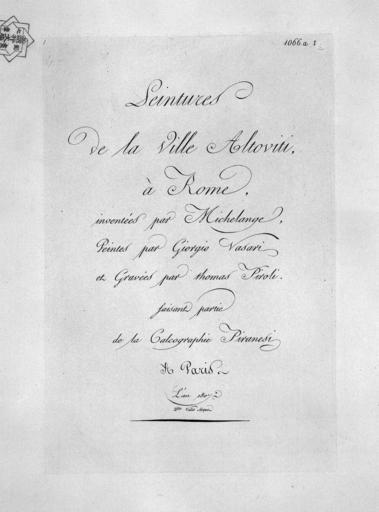 1066 a 1
Peintures
de la Ville Altoviti,
à Rome,
inventées par Michelange,
Peintes par Giorgio Vasari
et Gravées par thomas Piroli.
faisant partie
de la Calcographie Piranesi
A Paris
L'an 1807